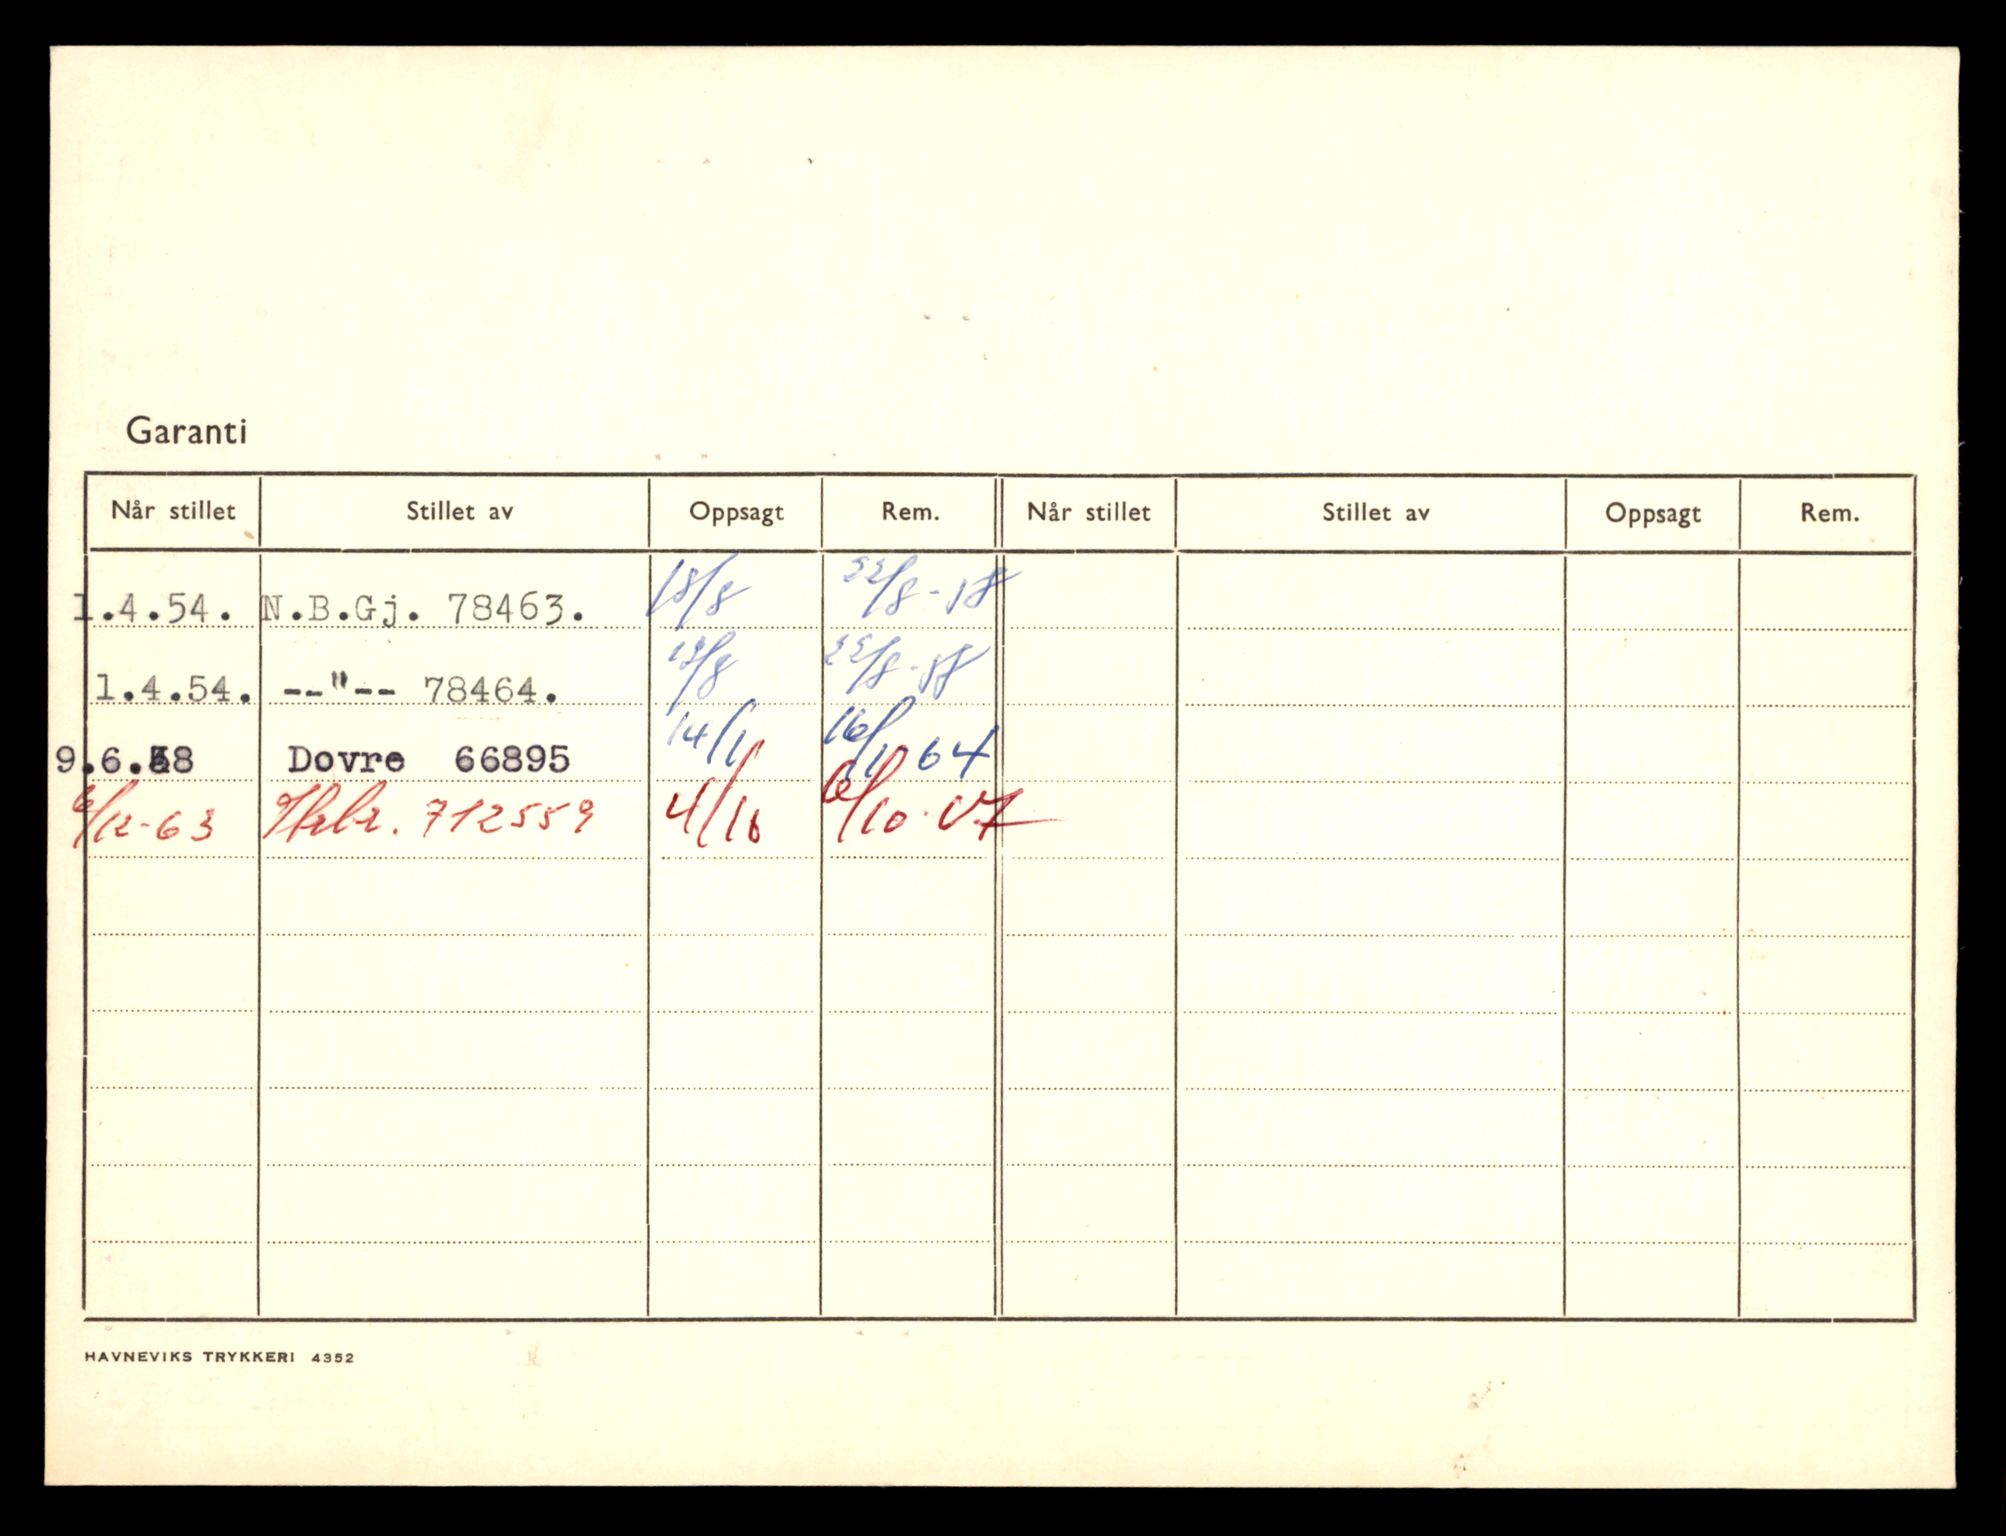 Garanti
Når stillet Stillet av Oppsagt Rem. Når stillet Stillet av Oppsagt Rem.
1.4.54. N.B.Gj. 78463. 18/8 22/8-58
1.4.54. --"-- 78464. 18/8 22/8-58
9.6.58 Dovre 66895 14/11 16/11 64
6/12-63 712559 4/10 6/10.
HAVNEVIKS TRYKKERI 4352